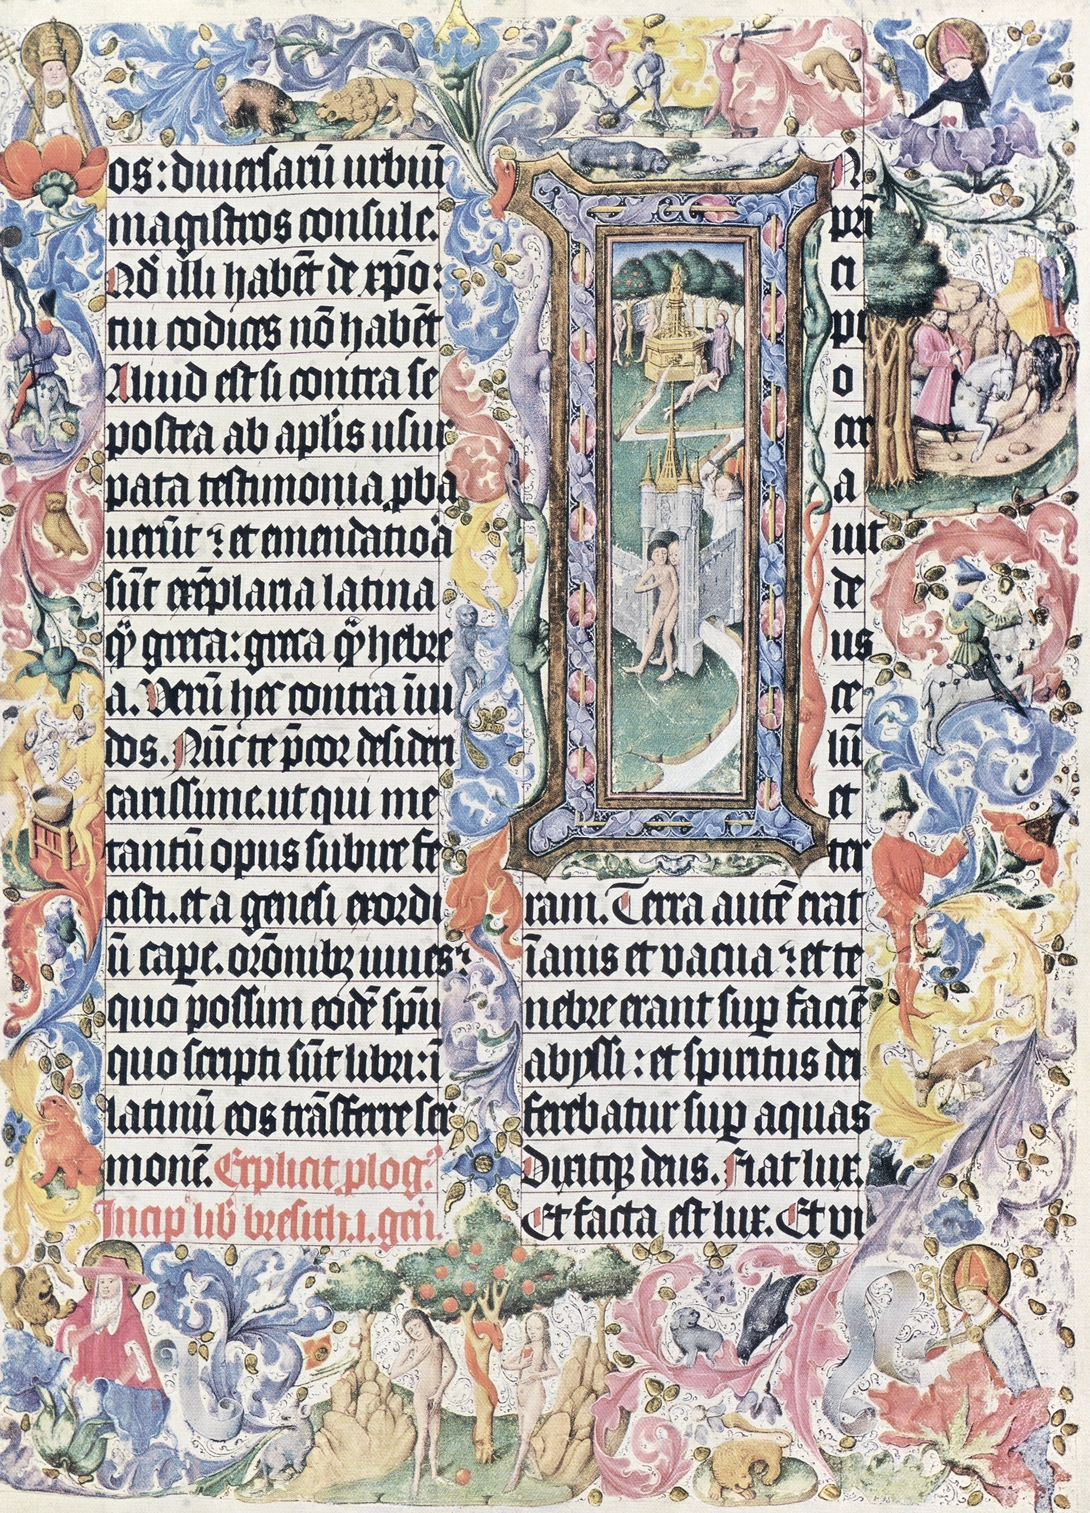 os: diuersarū urbiū
magistros consule.
Qd̄ illi habēt de xp̄o:
tui codices nō habēt
Aliud est si contra se
postea ab aplis usur
pata testimonia ꝓba
uerūt : et emendatiōa
sūt exēplaria latina
q̄ greca: greca q̄ hebre
a. Verū hec contra īui
dos. Nūc te p̄cor desideri
carissime. ut qui me
tantū opus subire fe
cisti. et a genesi exordi
ū cape. orōnibꝫ iuues:
quo possim eodē spū
quo scripti sūt libri: ī
latinū eos trāsferre ser
monē. Explicit ꝓlog?
Incip lib bresith .i. gen̄.
I N
pri
ci
pi
o
cre
a
uit
de
us
ce
lū
et
ter
ram. Terra autē erat
īanis et vacua : et te
nebre erant suꝑ faciē
abyssi : et spiritus dei
ferebatur suꝑ aquas
Dixitqꝫ deus. Fiat lux.
Et facta est lux. Et vi